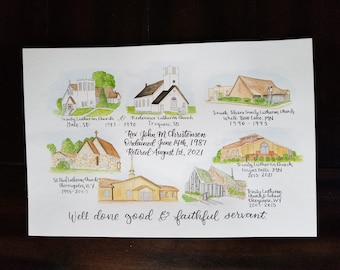 Trinity Lutheran Church &
Redeemer Lutheran Church
Iroquois, SD
1987 - 1990
South Shore Trinity Lutheran Church
White Bear Lake, MN
1990 - 1995
Rev. John M Christensen
Ordained June 14th, 1987
Retired August 1st, 2021
St. Paul Lutheran Church
Thermopolis, WY
Trinity Lutheran Church
2015 - 2021
Trinity Lutheran
Church & School
Cheyenne, WY
Well done good & faithful servant.